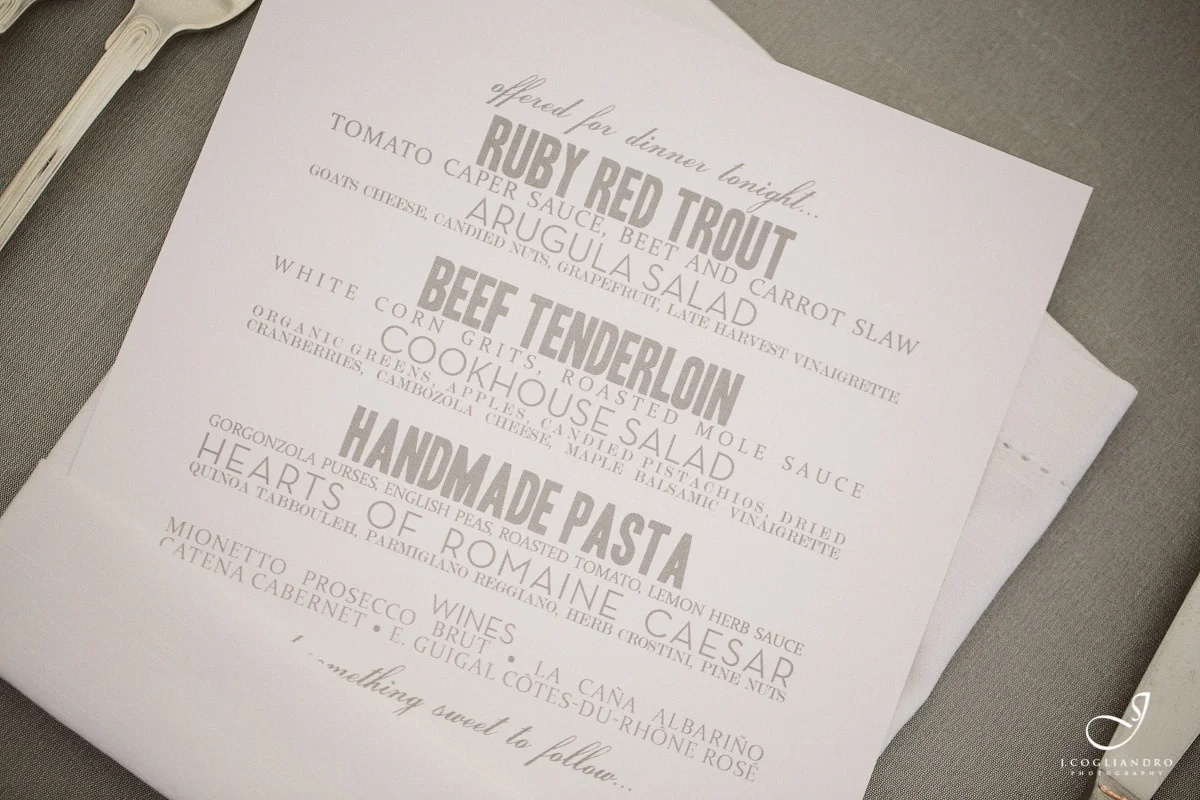 offered for dinner tonight...
RUBY RED TROUT
TOMATO CAPER SAUCE, BEET AND CARROT SLAW
ARUGULA SALAD
GOATS CHEESE, CANDIED NUTS, GRAPEFRUIT, LATE HARVEST VINAIGRETTE
BEEF TENDERLOIN
WHITE CORN GRITS, ROASTED MOLE SAUCE
COOKHOUSE SALAD
ORGANIC GREENS, APPLES, CANDIED PISTACHIOS, DRIED
CRANBERRIES, CAMBOZOLA CHEESE, MAPLE BALSAMIC VINAIGRETTE
HANDMADE PASTA
GORGONZOLA PURSES, ENGLISH PEAS, ROASTED TOMATO, LEMON HERB SAUCE
HEARTS OF ROMAINE CAESAR
QUINOA TABBOULEH, PARMIGIANO REGGIANO, HERB CROSTINI, PINE NUTS
WINES
MIONETTO PROSECCO BRUT • LA CAÑA ALBARIÑO
CATENA CABERNET • E. GUIGAL CÔTES-DU-RHÔNE ROSÉ
sweet to follow...
J.COGLIANDRO
PHOTOGRAPHY